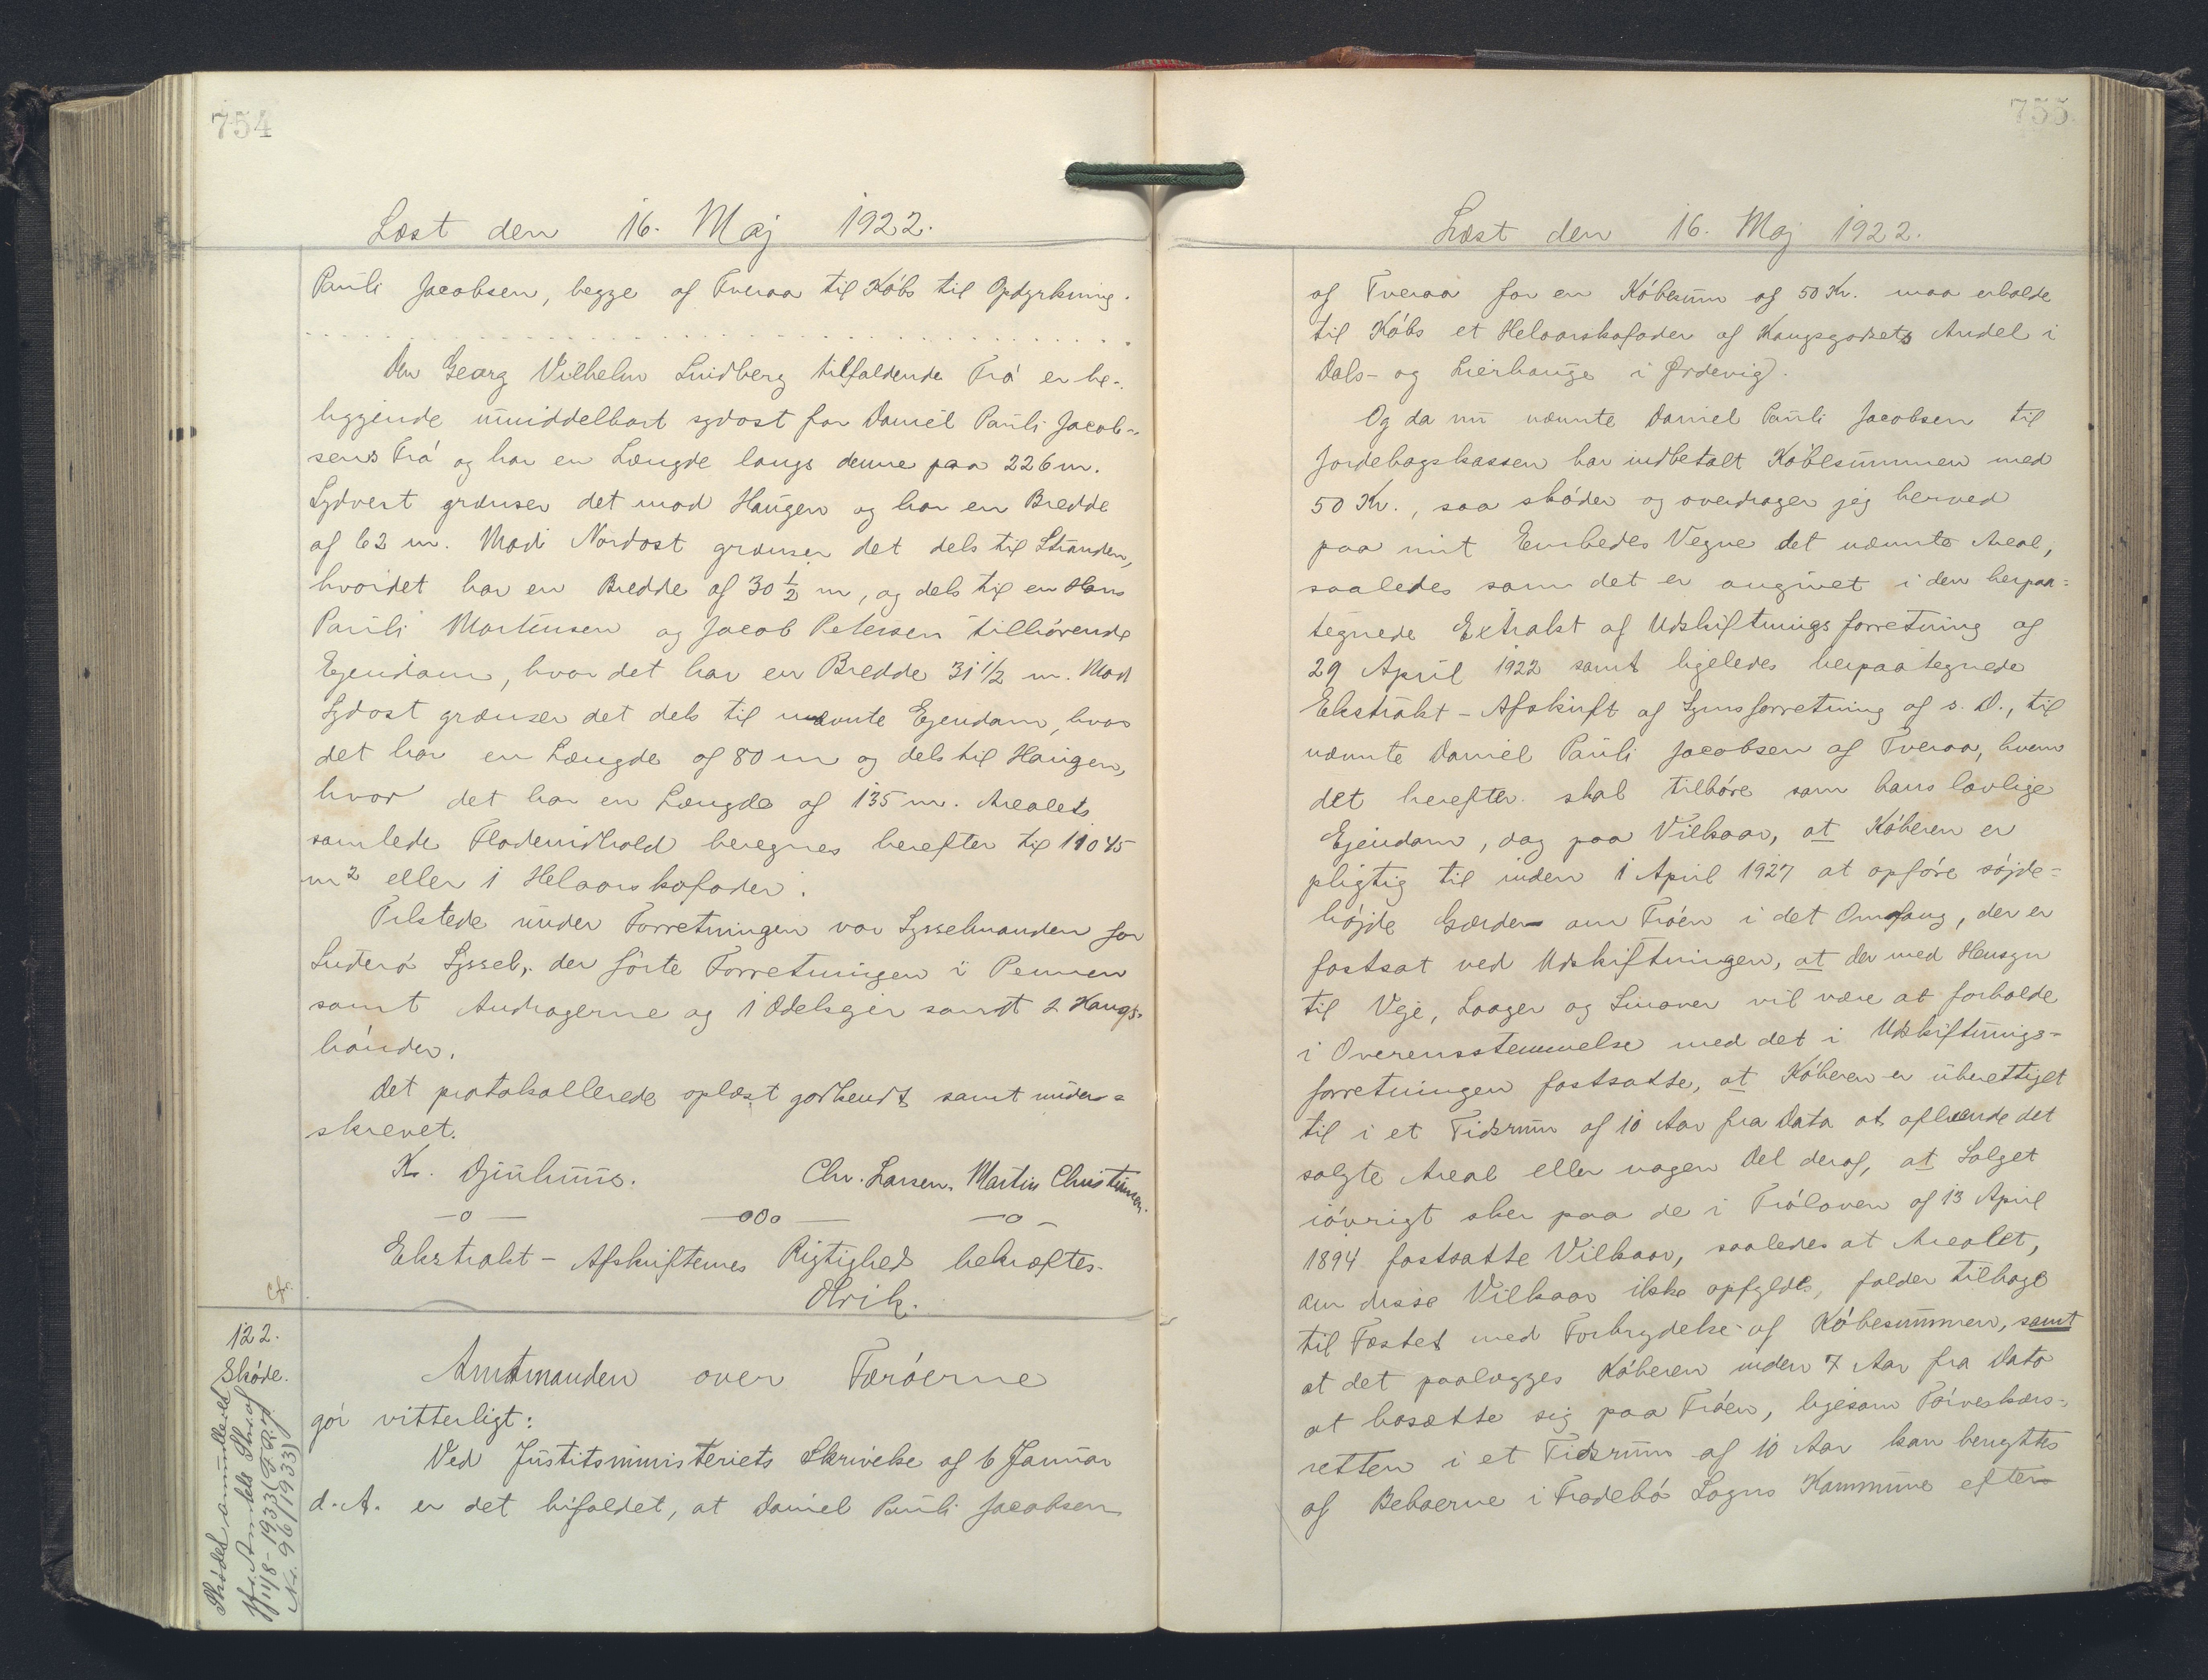 754
Læst den 16. Maj 1922.
Pauli Jacobsen, begge af Tveraa til Købs til Opdyrkning.
Den Georg Vilhelm Lindberg tilfaldende Trø er be-
liggende umiddelbart sydost for Daniel Pauli Jacob-
sens Trø og har en Længde langs denne paa 226 m.
Sydvest grænser det mod Haugen og har en Bredde
af 62 m. Mod Nordost grænser det dels til Stranden,
hvor det har en Bredde af 30 1/2 m, og dels til en Hans
Pauli Mortensen og Jacob Petersen tilhørende
Ejendom, hvor det har en Bredde 31 1/2 m. Mod
Sydost grænser det dels til nævnte Ejendom, hvor
det har en Længde af 80 m og dels til Haugen,
hvor det har en Længde af 135 m. Arealets
samlede Fladeindhold beregnes herefter til 11045
m2 eller 1 Helaarskofoder.
Tilstede under Forretningen var Sysselmanden for
Suderø Syssel, der førte Forretningen i Pennen
samt Andragerne og 1 Odelsejer samt 2 Kongs-
bønder.
Det protokollerede oplæst godkendt samt under-
skrevet.
K. Djurhuus. Chr. Larsen. Martin Christiansen.
—o— —oOo— —o—
Ekstrakt-Afskriftens Rigtighed bekræftes.
Olrik.
cfr.
122.
Skøde.
Skødet annulleret
jfr. Amtets Skr. af
11/8-1933 (F. R. af
Nr. 96/1933)
Amtmanden over Færøerne
gør vitterligt:
Ved Justitsministeriets Skrivelse af 6 Januar
d.A. er det bifaldet, at Daniel Pauli Jacobsen
755
Læst den 16. Maj 1922.
af Tveraa for en Købesum af 50 Kr. maa erholde
til Købs et Helaarskofoder af Kongsgodsets Andel i
Dals- og Lierhauge i Ørdevig.
Og da nu nævnte Daniel Pauli Jacobsen til
Jordebogskassen har indbetalt Købesummen med
50 Kr., saa skøder og overdrager jeg herved
paa mit Embedes Vegne det nævnte Areal,
saaledes som det er angivet i den herpaa-
tegnede Extrakt af Udskiftningsforretning af
29 April 1922 samt ligeledes herpaategnede
Ekstrakt-Afskrift af Synsforretning af s. D., til
nævnte Daniel Pauli Jacobsen af Tveraa, hvem
det herefter skal tilhøre som hans lovlige
Ejendom, dog paa Vilkaar, at Køberen er
pligtig til inden 1 April 1927 at opføre søjde-
højde Gærder om Trøen i det Omfang, der er
fastsat ved Udskiftningen, at der med Hensyn
til Veje, Laager og Smover vil være at forholde
i Overensstemmelse med det i Udskiftnings-
forretningen fastsatte, at Køberen er uberettiget
til i et Tidsrum af 10 Aar fra Dato at afhænde det
solgte Areal eller nogen Del deraf, at Salget
iøvrigt sker paa de i Trøloven af 13 April
1894 fastsatte Vilkaar, saaledes at Arealet,
om disse Vilkaar ikke opfyldes, falder tilbage
til Fæstet med Forbrydelse af Købesummen, samt
at det paalægges Køberen inden 7 Aar fra Dato
at bosætte sig paa Trøen, ligesom Tørveskærs-
retten i et Tidsrum af 10 Aar kan benyttes
af Beboerne i Frodebø Sogns Kommune efter